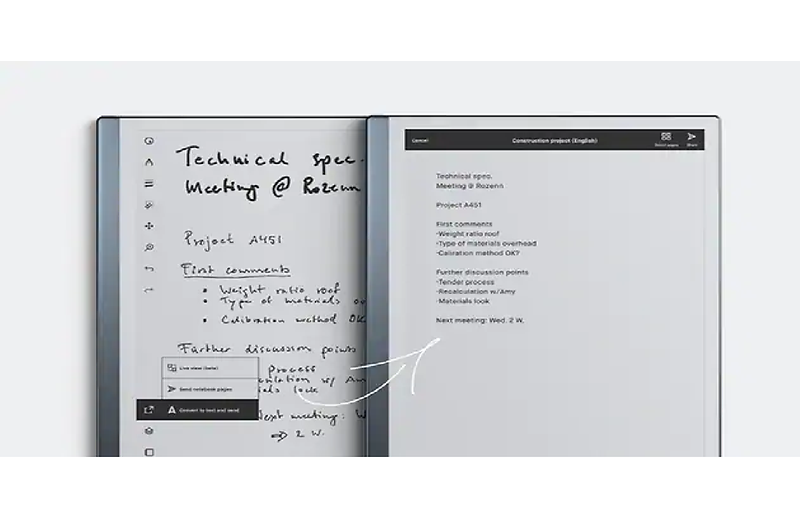 Technical spec.
Meeting @ Rozenn
Project A451
First comments
• Weight ratio roof
• Type of materials ov
• Calibration method OK
Further discussion points
process
ulation w/ Am
als lock
Next meeting: W
⇒ 2 W.
Live view (beta)
Send notebook pages
Convert to text and send
Cancel
Construction project (English)
Select pages
Share
Technical spec.
Meeting @ Rozenn
Project A451
First comments
-Weight ratio roof
-Type of materials overhead
-Calibration method OK?
Further discussion points
-Tender process
-Recalculation w/Amy
-Materials look
Next meeting: Wed. 2 W.